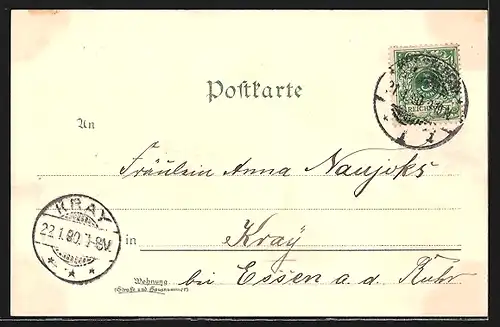 Postkarte
An
Fräulein Anna Naujoks
KRAY
22.1.99. 7-8V.
in Kray
Wohnung
(Straße und Hausnummer)
bei Essen a. d. Ruhr